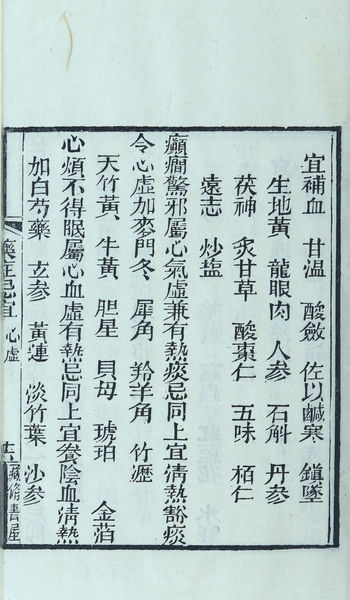 宜補血 甘温 酸斂 佐以鹹寒 鎮墜
生地黃 龍眼肉 人參 石斛 丹參
茯神 炙甘草 酸棗仁 五味 栢仁
遠志 炒塩
癲癇驚邪屬心氣虛兼有熱痰忌同上宜清熱豁痰
令心虛加麥門冬 犀角 羚羊角 竹瀝
天竹黃 牛黃 胆星 貝母 琥珀 金箔
心煩不得眠屬心血虛有熱忌同上宜養陰血清熱
加白芍藥 玄參 黃連 淡竹葉 沙參
藥症忌宜 心虛 藏修書屋